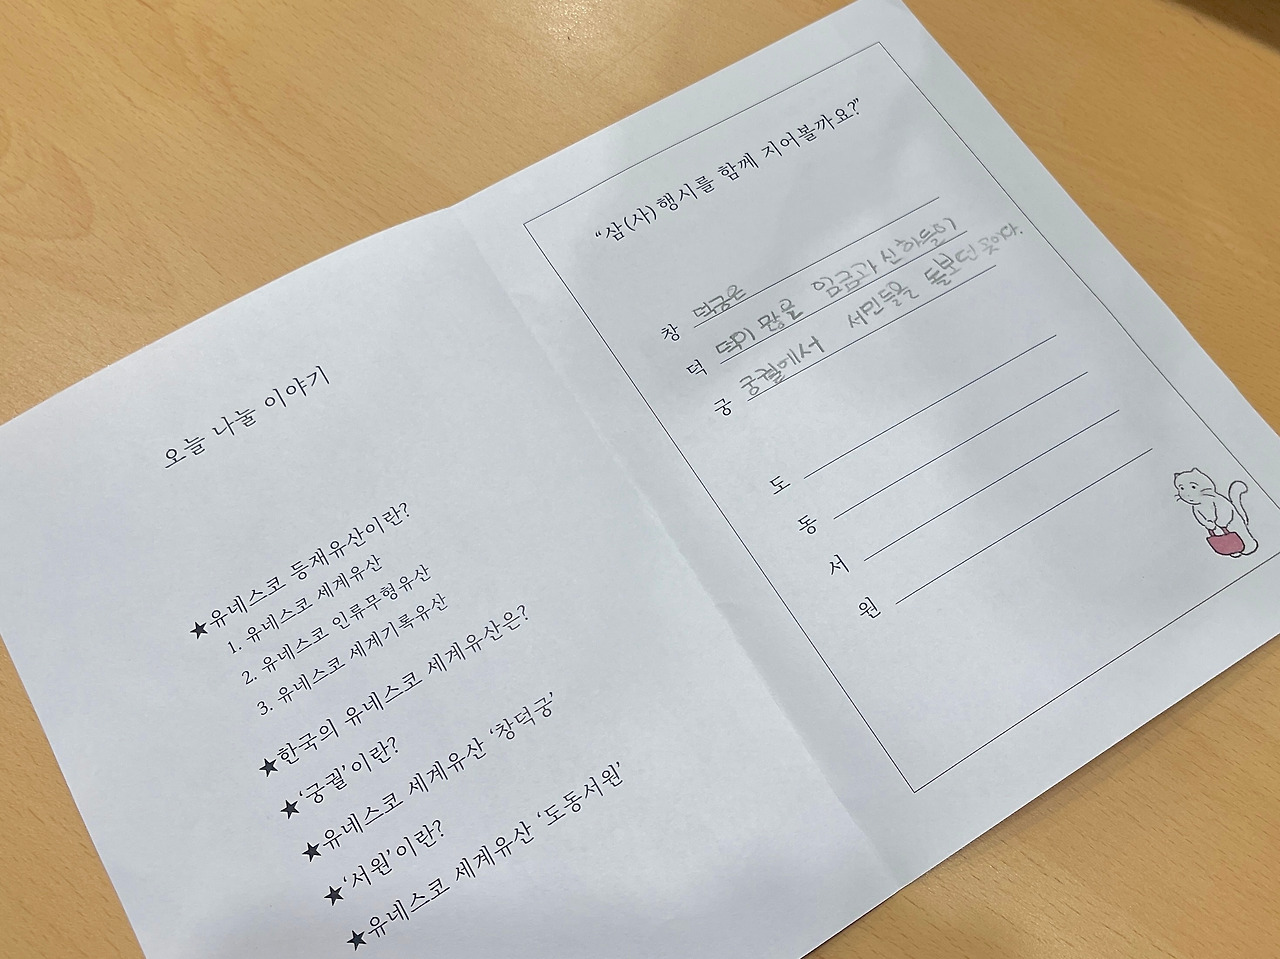 오늘 나눌 이야기
★유네스코 등재유산이란?
1. 유네스코 세계유산
2. 유네스코 인류무형유산
3. 유네스코 세계기록유산
★한국의 유네스코 세계유산은?
★‘궁궐’이란?
★유네스코 세계유산 ‘창덕궁’
★‘서원’이란?
★유네스코 세계유산 ‘도동서원’
“삼(사)행시를 함께 지어볼까요?”
창 덕궁은
덕 덕이 많은 임금과 신하들이
궁 궁궐에서 서민들을 돌보던 곳이다.
도
동
서
원